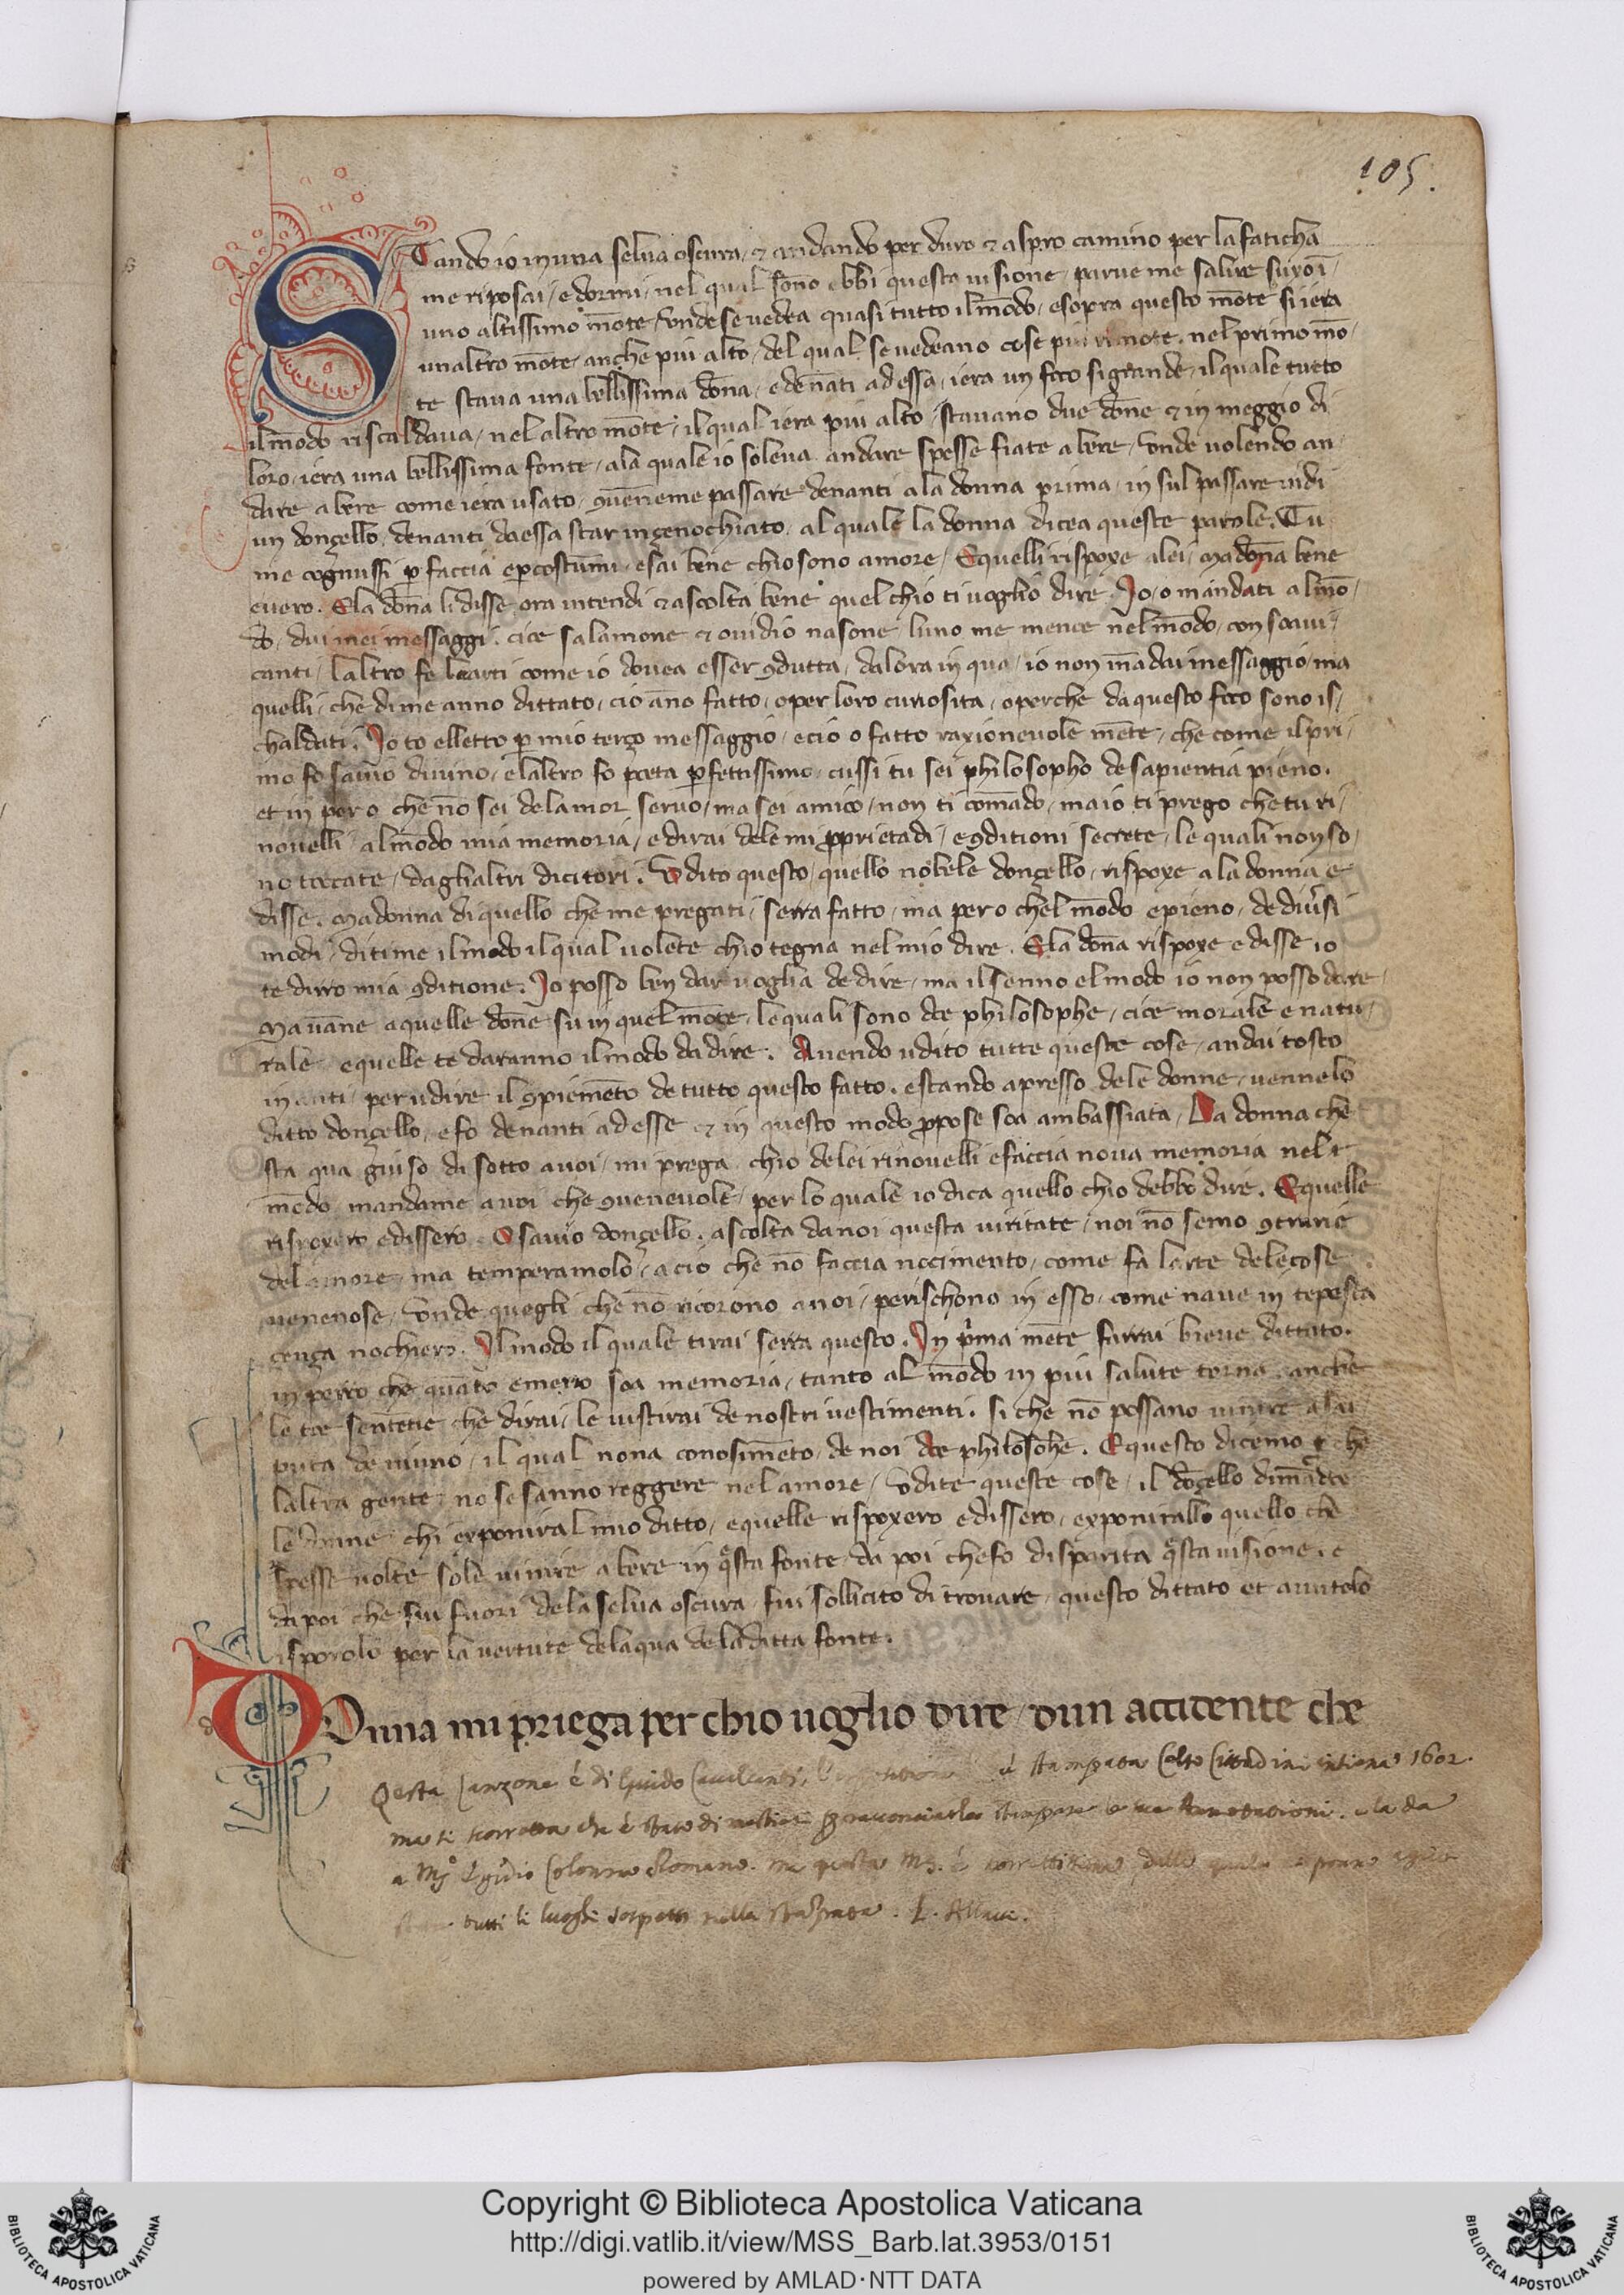 105.
Stando io in una selva oscura, & andando per duro & aspro camino per la faticha
me riposai, e dormi, nel qual sōno ebbi questa visione, parveme salire su voī,
uno altissimo mōte, onde se vedea quasi tutto il mōdo, e sopra questo mōte si iera
un altro mōte anche piu alto, del qual se vedeano cose piu rimote. nel primo mō,
te stava una bellissima dōna, e denāti ad essa, iera un foco si grande, il quale tutto
il mōdo riscaldava, nel altro mōte, il qual iera piu alto, stavano due dōne & in meggio di
loro, iera una bellissima fonte, ala quale io soleva andare spesse fiate a bere, onde volendo an,
dare a bere come iera usato, ꝯuēneme passare denanti ala donna prima, in sul passare vidi
un donçello, denanti da essa star ingenochiato, al quale la donna dicea queste parole. Tu
me cognussi ꝑ faccia e ꝑ costumi, e sai bene chio sono amore, Equelli rispoxe alei, Madōna bene
e vero. Ela dōna li disse, ora intendi & ascolta bene quel chio ti voglio dire. Io, o mandati al mō,
do, dui mei messaggi. cioe salamone & ovidio nasone, luno me mence nel mōdo, con soavi,
canti, laltro fe learti come io dovea esser ꝯdutta, dalora in qua, io non mādai messaggio, ma
quelli, che di me anno dittato, cio āno fatto, o per loro curiosita, o perche da questo foco sono is,
chaldati. Io to elletto ꝑ mio terço messaggio, e cio o fatto raxionevole mēte, che come il pri,
mo fo savio divino, e laltro fo poeta ꝑfettissimo, cussi tu sei philosopho de sapientia pieno.
et in pero che nō sei delamor servo, ma sei amico, non ti comādo, ma io ti prego che tu ri,
novelli, al mōdo mia memoria, e dirai dele mi ꝓprietadi, e ꝯditioni secrete, le quali non so,
no toccate, daglialtri dicitori. Udito questo, quello nobele donçello, rispoxe ala donna e
disse. Madonna di quello che me pregati, serra fatto, ma pero chel mōdo e pieno, de diūsi
modi, ditime il modo il qual volete chio tegna nel mio dire. Ela dōna rispoxe e disse io
te dirro mia ꝯditione. Io posso ben dar voglia de dire, ma il senno el modo io non posso dare,
Ma vāne a quelle dōne su in quel mōte, le quali sono doe philosophe, cioe morale e natu,
rale, e quelle te daranno il modo da dire. Avendo udito tutte queste cose, andai tosto
inanti, per udire il ꝯpiemēto de tutto questo fatto. e stando apresso dele donne, venne lo
ditto donçello, e fo denanti ad esse & in questo modo ꝓpose soa ambassiata, La donna che
sta qua giuiso di sotto a voi, mi prega, chio de lei rinovelli e faccia nova memoria nel
mōdo, mandame a voi che ꝯvenevole, per lo quale io dica quello chio debbo dire. Equelle
rispoxero e dissero. O savio donçello. ascolta da noi questa viritate, noi nō semo ꝯtrarie
delamore, ma temperamolo, acio che nō faccia nocimento, come fa larte dele cose
venenose, onde quegli che nō ricorono a noi, perischono in esso, come nave in tēpesta
cença nochiero. Il modo il quale tirai serra questo. In pͥma mēte farrai bieve dittato.
in perro che quāto e mēno soa memoria, tanto al mōdo in piu salute torna. anche
le toe sentētie che dirai, le vistirai de nostri vestimenti. si che nō possano vinire a sai
puta de niuno, il qual nona conosimēto, de noi doe philosohe. E questo dicemo ꝑ che
laltra gente, no se sanno reggere nel amore, Udite queste cose, il dōçello dimādoe
le donne chi exponiral mio ditto, e quelle rispoxero e dissero, exponirallo quello che
spesse volte sole vinire a bere in qͣsta fonte, da poi che fo disparita qͣsta visione, e
da poi che fui fuori dela selva oscura, fui sollicito di trovare, questo dittato et avutolo
isporolo per la vertute delaqua dela ditta fonte.
Donna mi priega per chio voglio dire, dun accidente che
Qesta Canzone é di Guido Cavalcanti, é stampata Celso Cittadini 1602.
a Mͦ Egidio Colonna Romano. ma questa Ms. é
tutti li luoghi sospetti nella stampata. L. Allacci.
Copyright © Biblioteca Apostolica Vaticana
http://digi.vatlib.it/view/MSS_Barb.lat.3953/0151
powered by AMLAD·NTT DATA
BIBLIOTECA APOSTOLICA VATICANA
BIBLIOTECA APOSTOLICA VATICANA